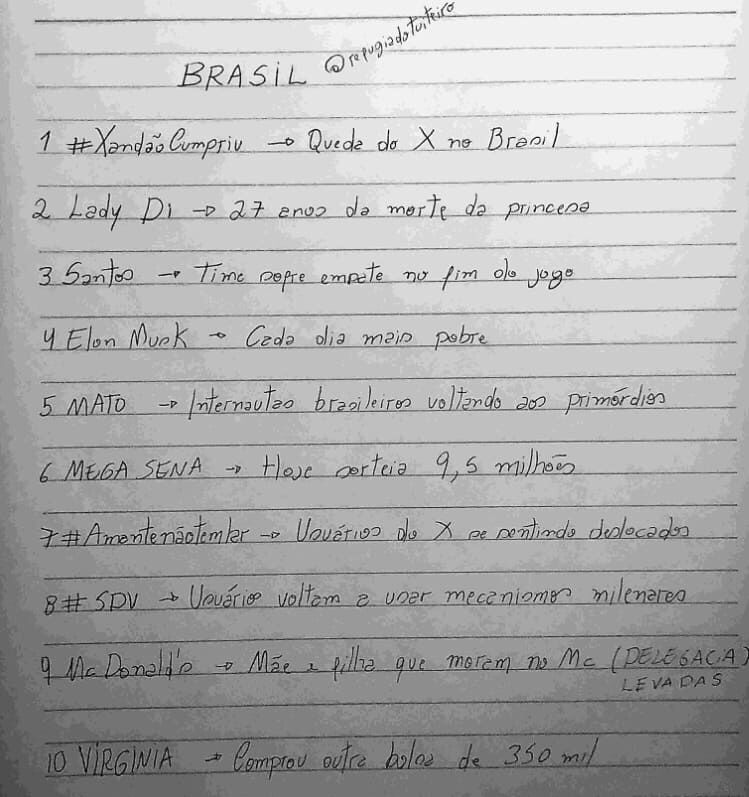 @refugiadotuiteiro
BRASIL
1 #XandãoCumpriu → Queda do X no Brasil
2 Lady Di → 27 anos da morte da princesa
3 Santos → Time sofre empate no fim do jogo
4 Elon Musk → Cada dia mais pobre
5 MATO → Internautas brasileiros voltando aos primórdios
6 MEGA SENA → Hoje sorteia 9,5 milhões
7 #Amantenãotemlar → Usuários do X se sentindo deslocados
8 # SDV → Usuários voltam a usar mecanismos milenares
9 McDonald's → Mãe e filha que moram no Mc (DELEGACIA)
LEVADAS
10 VIRGINIA → Comprou outra bolsa de 350 mil